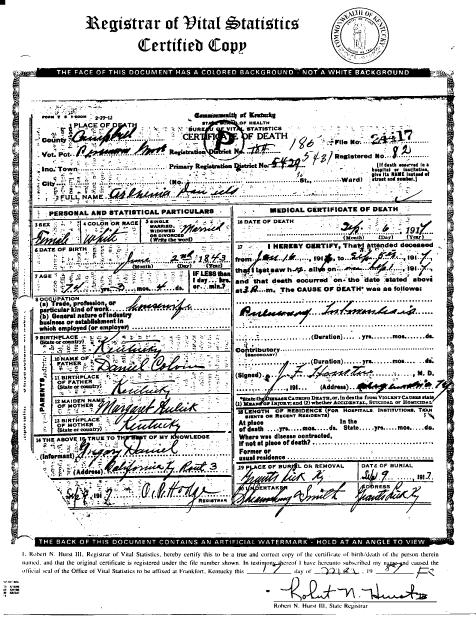 Registrar of Vital Statistics
Certified Copy
COMMONWEALTH OF KENTUCKY
THE FACE OF THIS DOCUMENT HAS A COLORED BACKGROUND - NOT A WHITE BACKGROUND
Commonwealth of Kentucky
STATE BOARD OF HEALTH
BUREAU OF VITAL STATISTICS
CERTIFICATE OF DEATH
1 PLACE OF DEATH
County Campbell
File No. 24417
Vot. Pct. Registration District No. Registered No. 82
Inc. Town Primary Registration District No.
[If death occurred in a hospital or institution, give its NAME instead of street and number.]
City (No. St., Ward)
2 FULL NAME Daniels
PERSONAL AND STATISTICAL PARTICULARS
MEDICAL CERTIFICATE OF DEATH
3 SEX Female
4 COLOR OR RACE White
5 SINGLE MARRIED, WIDOWED OR DIVORCED (Write the word) Married
16 DATE OF DEATH
6 1917
(Month) (Day) (Year)
6 DATE OF BIRTH
June 2nd 1843
(Month) (Day) (Year)
17 I HEREBY CERTIFY, That I attended deceased
from 191 to 1917
that I last saw h alive on 1917,
and that death occurred on the date stated above
at m. The CAUSE OF DEATH was as follows:
7 AGE
74 yrs. 3 mos. 4 ds.
IF LESS than 1 day... hrs. or...min.?
8 OCCUPATION
(a) Trade, profession, or particular kind of work housewife
(b) General nature of industry business or establishment in which employed (or employer)
(Duration) yrs. mos. ds.
9 BIRTHPLACE
(State or country) Kentucky
Contributory
(SECONDARY)
(Duration) yrs. mos. ds.
PARENTS
10 NAME OF FATHER Daniel
(Signed) J. F. M. D.
191 (Address)
11 BIRTHPLACE OF FATHER
(State or country) Kentucky
*State the DISEASE CAUSING DEATH, or, in deaths from VIOLENT CAUSES state (1) MEANS OF INJURY; and (2) whether ACCIDENTAL, SUICIDAL or HOMICIDAL.
12 MAIDEN NAME OF MOTHER Margaret
13 BIRTHPLACE OF MOTHER
(State or country) Kentucky
18 LENGTH OF RESIDENCE (FOR HOSPITALS, INSTITUTIONS, TRANSIENTS OR RECENT RESIDENTS)
At place of death yrs. mos. ds. In the State yrs. mos. ds.
Where was disease contracted, if not at place of death?
Former or usual residence
14 THE ABOVE IS TRUE TO THE BEST OF MY KNOWLEDGE
(Informant) Daniel
(Address) California Ky Route 3
19 PLACE OF BURIAL OR REMOVAL
Grants Lick Ky
DATE OF BURIAL
Sep 9 1917
15
1917
REGISTRAR
20 UNDERTAKER
Smith
ADDRESS
Grants Lick Ky
THE BACK OF THIS DOCUMENT CONTAINS AN ARTIFICIAL WATERMARK - HOLD AT AN ANGLE TO VIEW
I, Robert N. Hurst III, Registrar of Vital Statistics, hereby certify this to be a true and correct copy of the certificate of birth/death of the person therein
named, and that the original certificate is registered under the file number shown. In testimony thereof I have hereunto subscribed my name and caused the
official seal of the Office of Vital Statistics to be affixed at Frankfort, Kentucky this 17 day of Mar 19
Robert N. Hurst III
Robert N. Hurst III, State Registrar